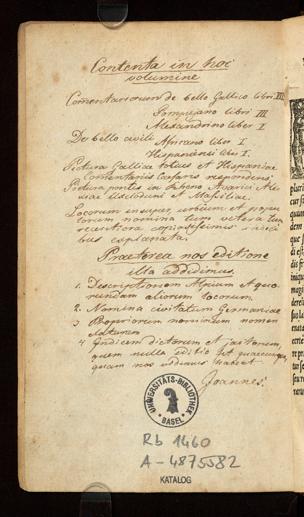 Contenta in hoc
volumine
Comentariorum de bello Gallico libri IIX
Pompejano libri III
Alexandrino liber I
De bello civili Africano liber I
Hispaniensi liber I
Pictura Galliae totius et Hispaniae
Comentariis Caesaris respondens
Pictura pontis in Rheno Avarici Ale-
xiae Uxelloduni et Massiliae.
Locorum insuper urbiumque et popu
lorum nomina tum vetera tum
recentiora copiosissimis indici
bus explanata.
Praeterea nos editione
illa addidimus
1. Descriptionem Alpium et quo-
rundam aliorum locorum
2. Nomina civitatum Germaniae
3. Propriorum nominum nomen
clatorem
4 Indicem dictorum et factorum,
quem nulla editio
quam nos vidimus habent
Joannes.
UNIVERSITÄTS-BIBLIOTHEK
BASEL
Rb 1460
A-4875582
KATALOG